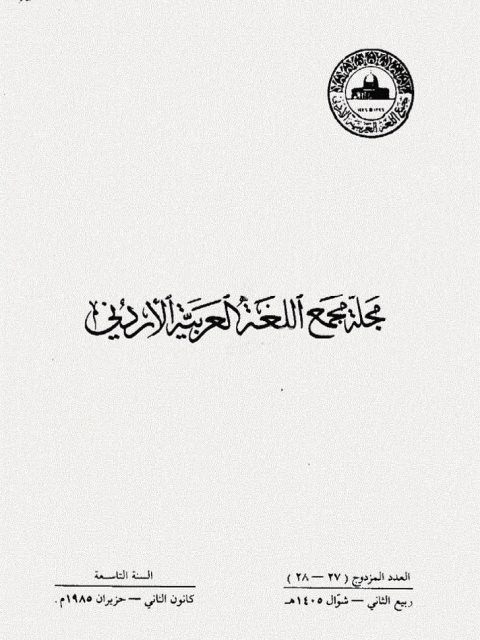 مجمع اللغة العربية الأردني
مجلة مجمع اللغة العربية الأردني
العدد المزدوج ( ٢٧ — ٢٨ )
ربيع الثاني — شوّال ١٤٠٥هـ
السنة التاسعة
كانون الثاني — حزيران ١٩٨٥م.